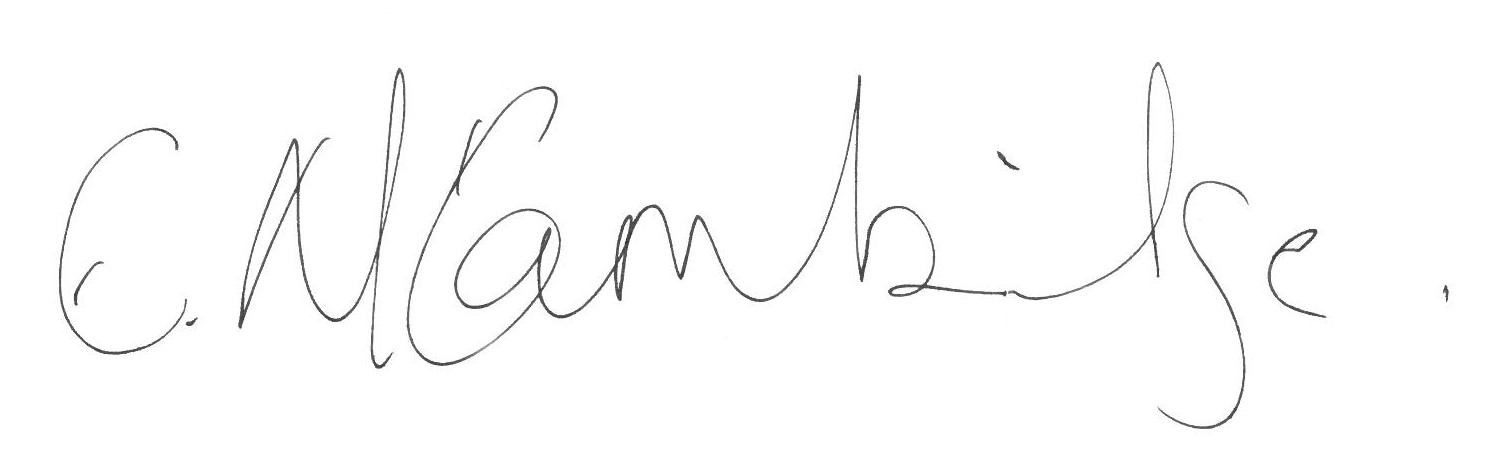 C. N Cambridge.